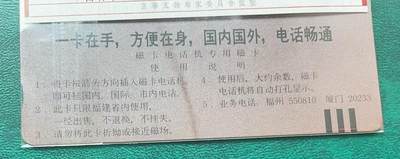 一卡在手，方便在身，国内国外，电话畅通
磁卡电话机专用磁卡
使用说明
1．将卡按箭头方向插入磁卡电话机，
即可挂国内、国际、市内电话。
2．此卡只限福建省内使用，
一经出售，不退换，不挂失。
3．请勿将此卡折拗或接近磁场。
4．使用后，大约余数，磁卡
电话机将自动打孔显示。
5．业务电话：福州 550810 厦门 20233